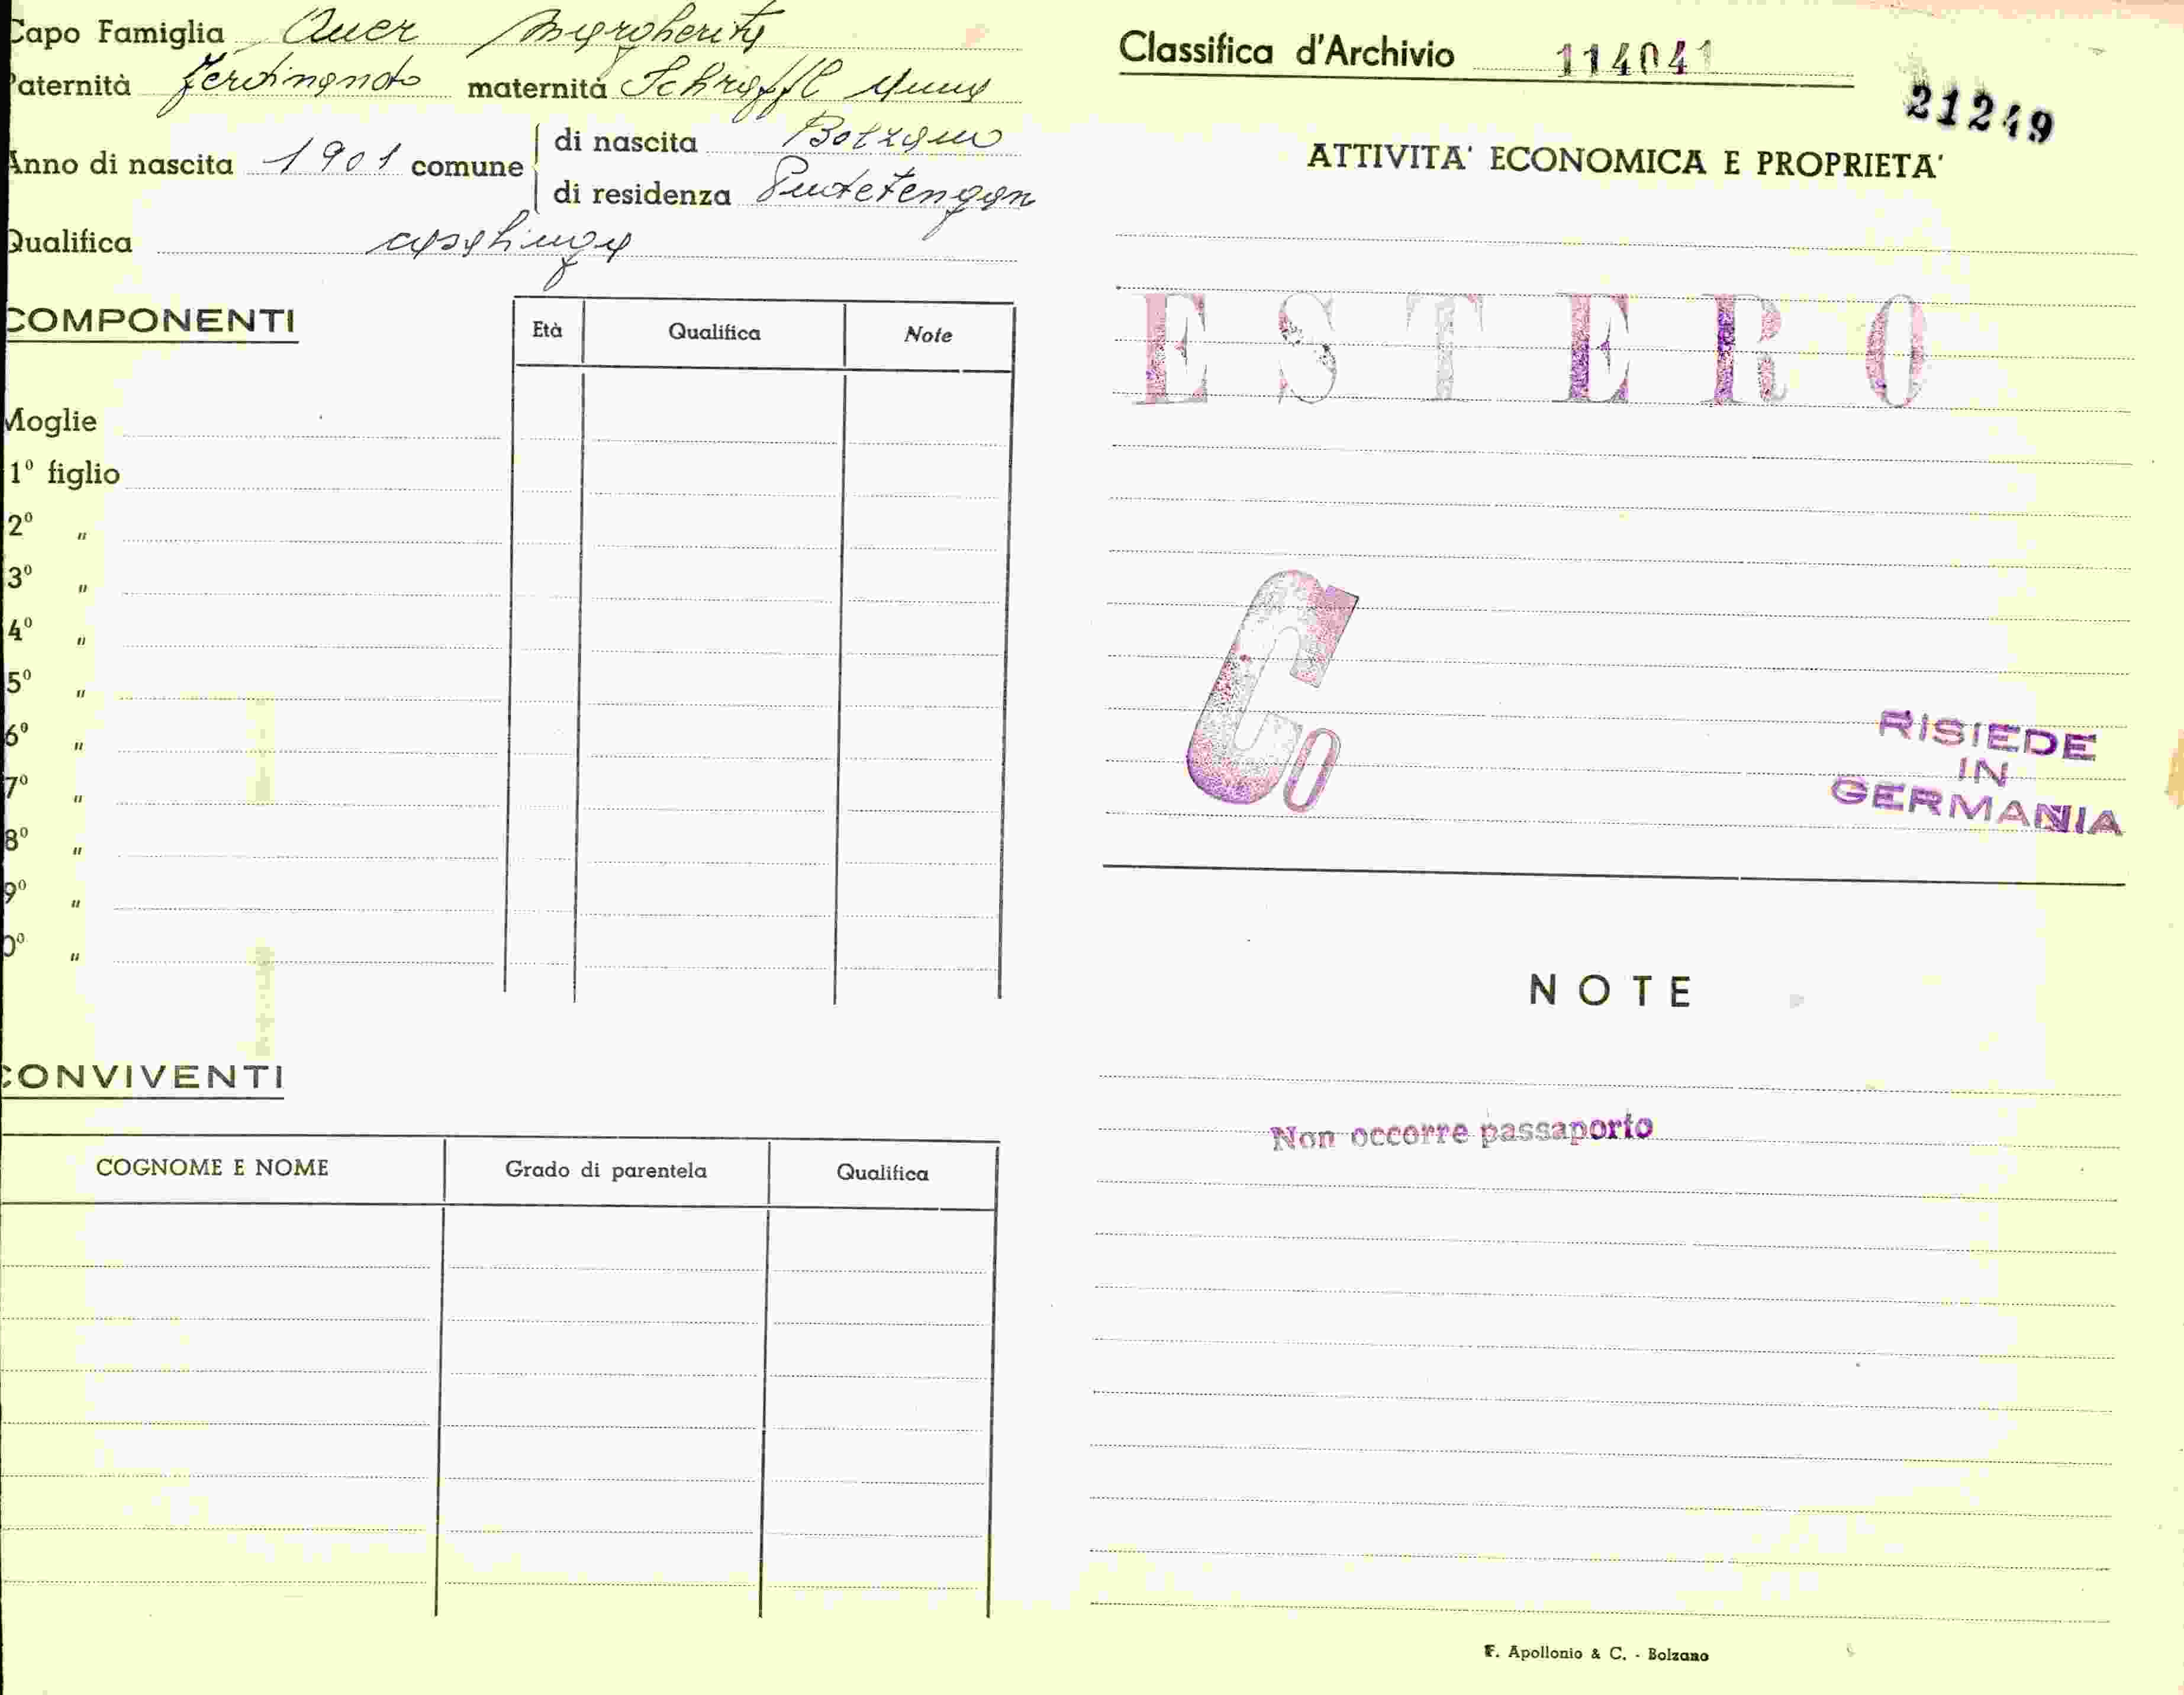 Capo Famiglia Auer Margherita
Paternità Ferdinando maternità Schraffl Anna
Anno di nascita 1901 comune di nascita Bolzano
di residenza
Qualifica casalinga
COMPONENTI
Età Qualifica Note
Moglie
1º figlio
2º "
3º "
4º "
5º "
6º "
7º "
8º "
9º "
0º "
CONVIVENTI
COGNOME E NOME Grado di parentela Qualifica
Classifica d'Archivio 114041
21249
ATTIVITA' ECONOMICA E PROPRIETA'
ESTERO
Co
RISIEDE
IN
GERMANIA
NOTE
Non occorre passaporto
F. Apollonio & C. - Bolzano